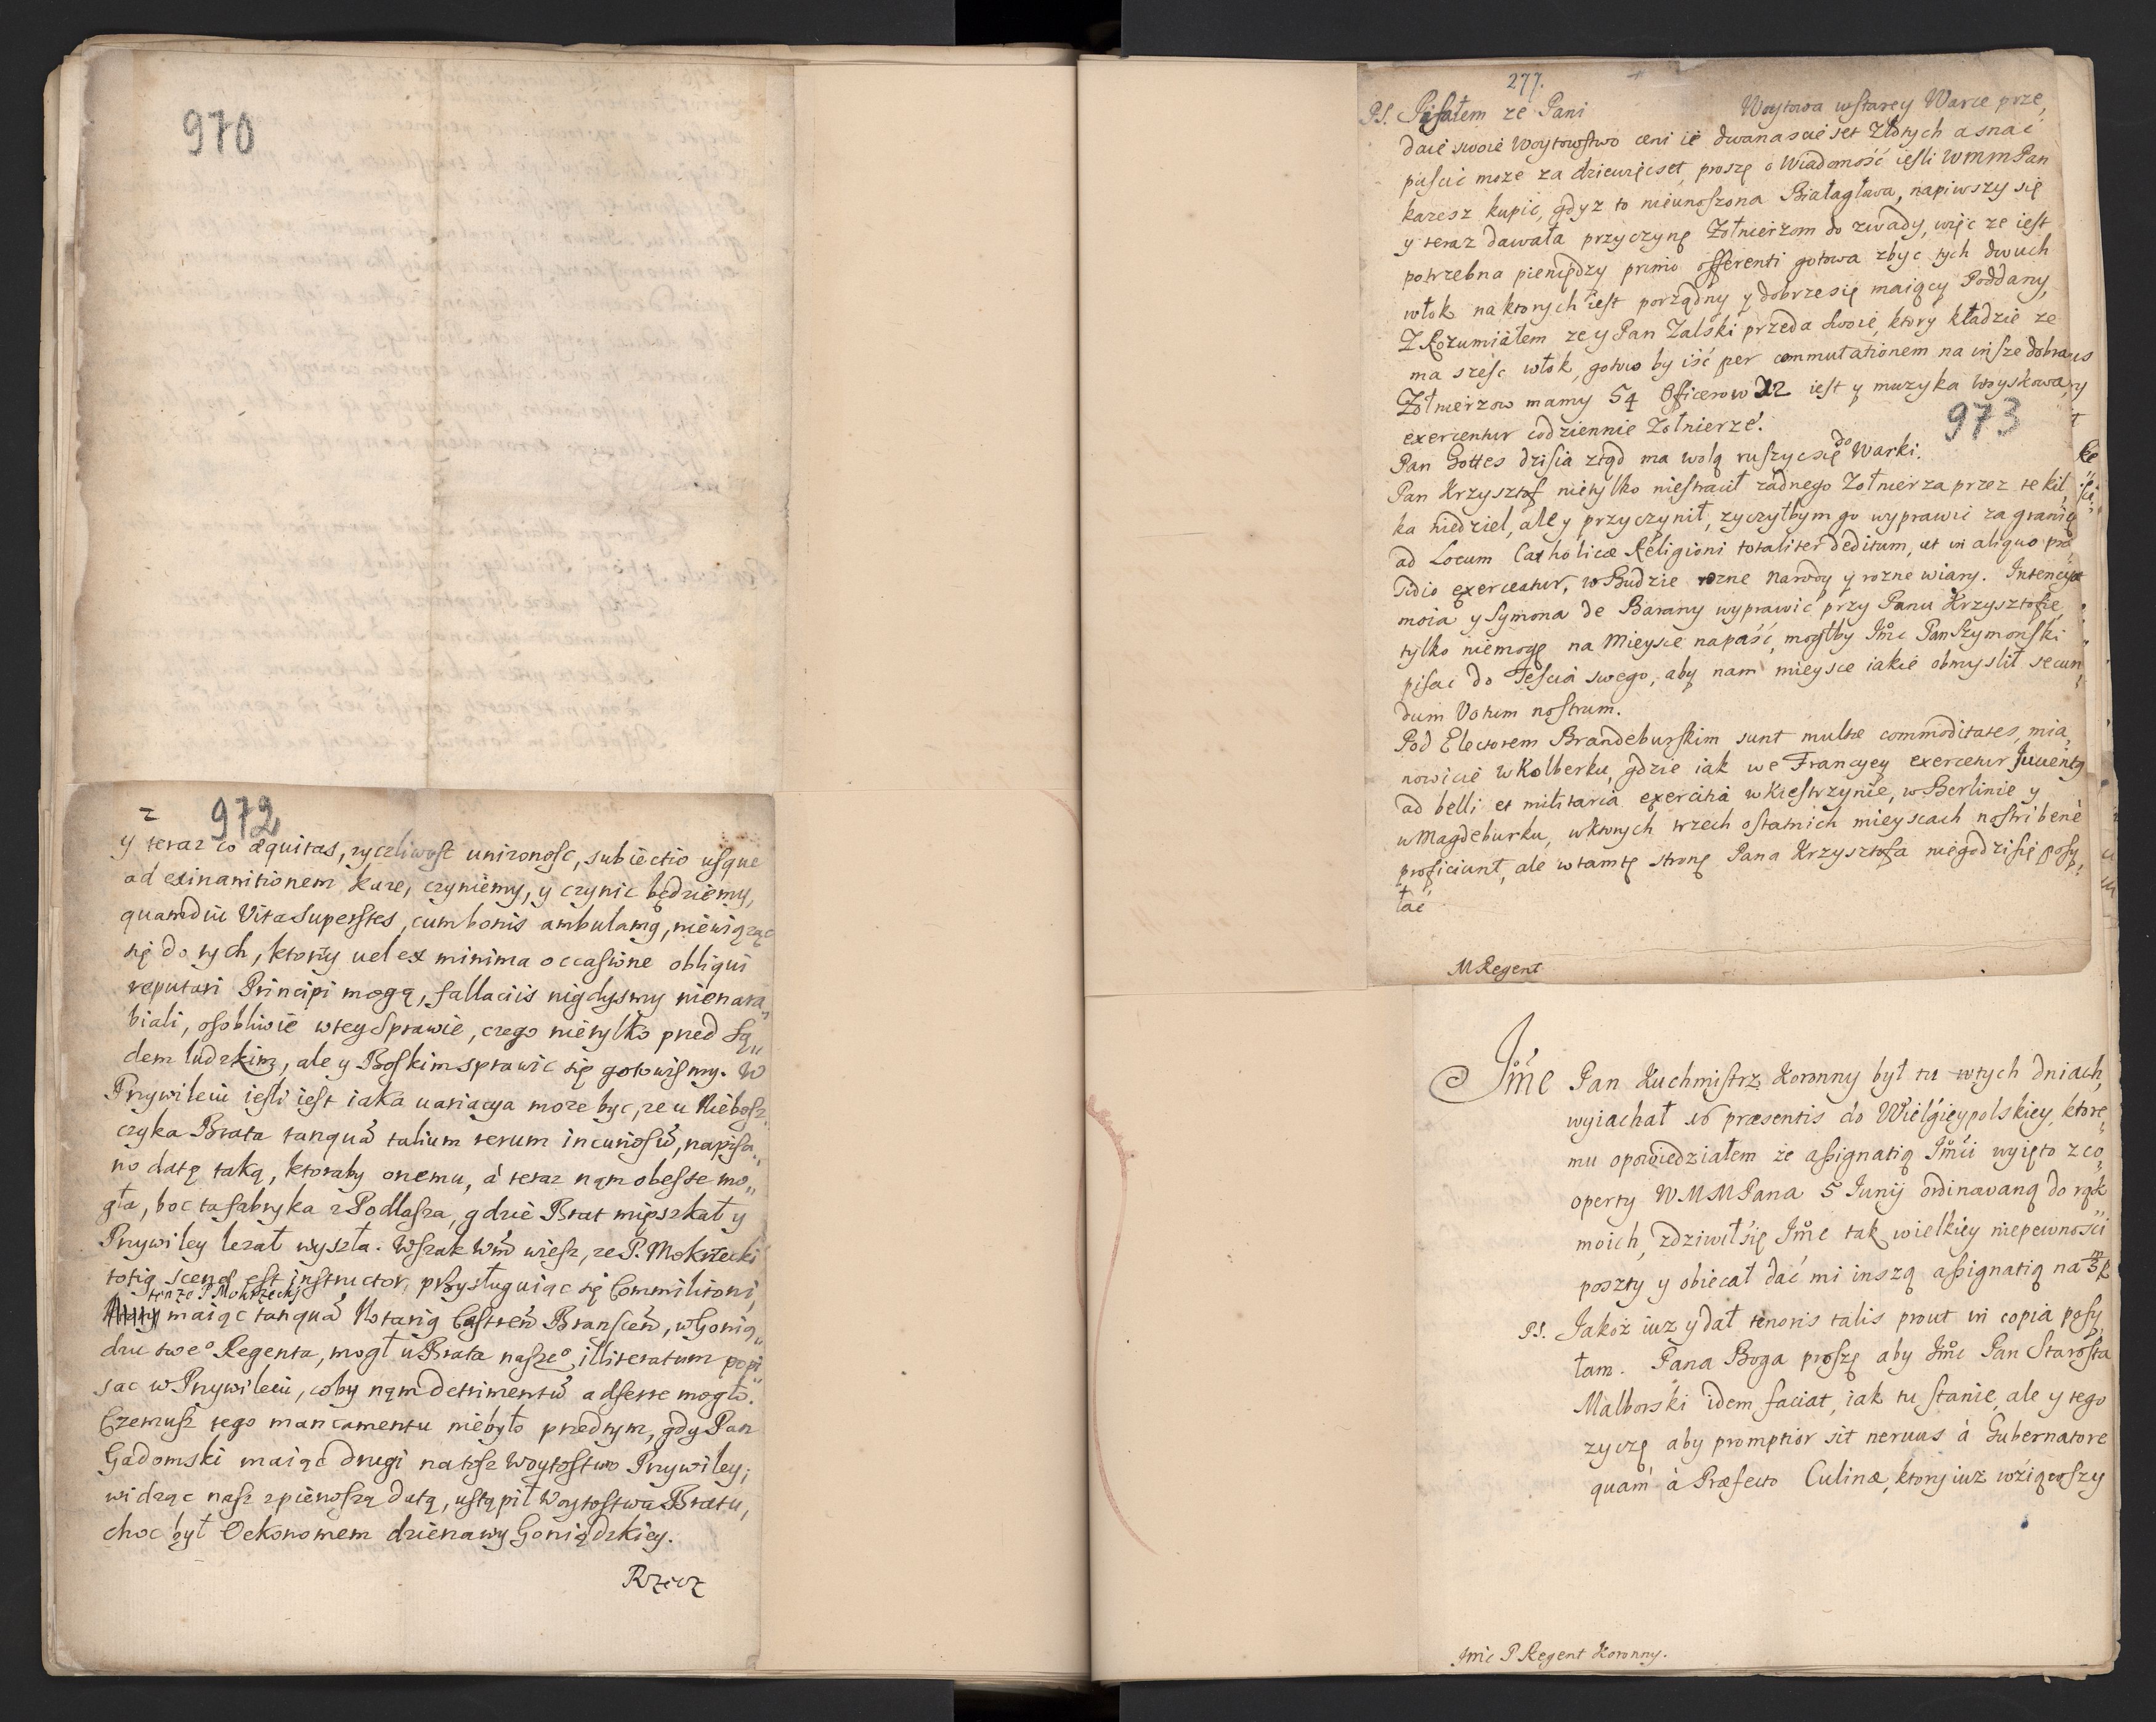 970
z 972
y teraz co æquitas, zyczliwost unizonosc, subiectio usque
ad exinanitionem kaze, czyniemy, y czynic będziemy,
quamdiu Vita Superstes, cum bonis ambulamq, niewiążąc
się do tych, ktorzy uel ex minima occasione obliqui
reputari Principi mogą, fallaciis nigdysmy nienara„
biali, osobliwie wtey Sprawie, czego nietylko pred Są„
dem ludzkim, ale y Boskim sprawic się gotowismy. W
Prywileiu iesli iest iaka uariacya moze byc, ze u Niebosz„
czyka Brata tanquã talium rerum incuriosũ, napisa„
no datę taką, ktoraby onemu, á teraz nąm obesse mo„
gła, boc ta fabryka z Podlasza, gdzie Brat mięszkał y
Prywiley lezał wyszła. Wszak Wm̃ wiesz, ze P. Mokrzecki
totiq scenæ est instructor, przysługuiąc się Commilitoni,
tenze P Mokrzecky
maiąc tanquã Notariq Castreñ Bransceñ, w Gonią„
dzu twe⁰ Regenta, mogł u Brata nasze⁰ illiteratum popi„
sac w Prywileiu, coby nąm detrimentũ adferre mogło.
Czemusz tego mancamentu niebyło przedtym, gdy Pan
Gadomski maiąc drugi natosz Woytostwo Prywiley;
widząc nasz zpierwszą datą, ustąpił Woytostwa Bratu,
choc był Oekonomem dzierzawy Goniądzkiey.
Rzecz
277.
P.S. Pisałem ze Pani Woytowa wstarey Warce prze„
daie swoie Woytowstwo ceni ie dwanascie set Złotych a snać
puscić moze za dziewięcset, proszę o Wiadomość iesli WMMPan
karesz kupic, gdyz to nieunoszona Białagława, napiwszy się
y teraz dawała przyczynę Zołnierzom do zwady, więc ze iest
potrzebna pieniędzy primo offerenti gotowa zbyc tych dwuch
włok na ktorych iest porządny y dobrze się maiący Poddany,
Z Rozumiałem ze y Pan Zalski przeda swoie, ktory kładzie ze
ma szesc włok, gotow by iść per commutationem na insze dobra
Zołnierzow mamy 54 Officerow 12 iest y muzyka Woyskowa,
973
exercentur codziennie Zołnierze.
Pan Gottes dzisia ztąd ma wolą ruszyc się do Warki.
Pan Krzysztof nietylko niestracił zadnego Zołnierza przez te kil„
ka niedziel, ale y przyczynił, zyczyłbym go wyprawić za granicę
ad Locum Catholicæ Religioni totaliter deditum, ut in aliquo præ„
sidio exerceatur, w Budzie rozne Narody y rozne wiary. Intencya
moia y Symona de Barany wyprawić przy Panu Krzysztofie,
tylko niemogę na Mieysce napaść, mogłby Jm̃c Pan Szymonski
pisać do Teścia swego, aby nam mieysce iakie obmyslił secun„
dum Votum nostrum.
Pod Electorem Brandeburskim sunt multæ commoditates, mia„
nowicie w Kolberku, gdzie iak we Francyey exercetur Juuentq
ad belli et militaria exercitia w Kiestrzynie, w Berlinie y
w Magdeburku, wktorych trzech ostatnich mieyscach nostri bene
proficiunt, ale wtamtę stronę Pana Krzysztofa niegodzi się posy„
łać
M Regent
Jm̃c Pan Kuchmistrz Koronny był tu wtych dniach,
wyiachał 16 præsentis do Wielgieypolskiey, ktore„
mu opowiedziałem że assignatią Jm̃ći wyięto z co„
operty WMMPana 5 Junij ordinavaną do rąk
moich, zdziwił się Jm̃c tak wielkiey niepewności
poszty y obiecał dać mi inszą assignatią na
P.S. Jakoż iuz y dał tenoris talis prout in copia posy„
łam. Pana Boga proszę aby Jm̃c Pan Starosta
Malborski idem faciat, iak tu stanie, ale y tego
zyczę, aby promptior sit neruus à Gubernatore
quàm à Præfecto Culinæ, ktory iuz wziąwszy
Jmc P Regent Koronny.